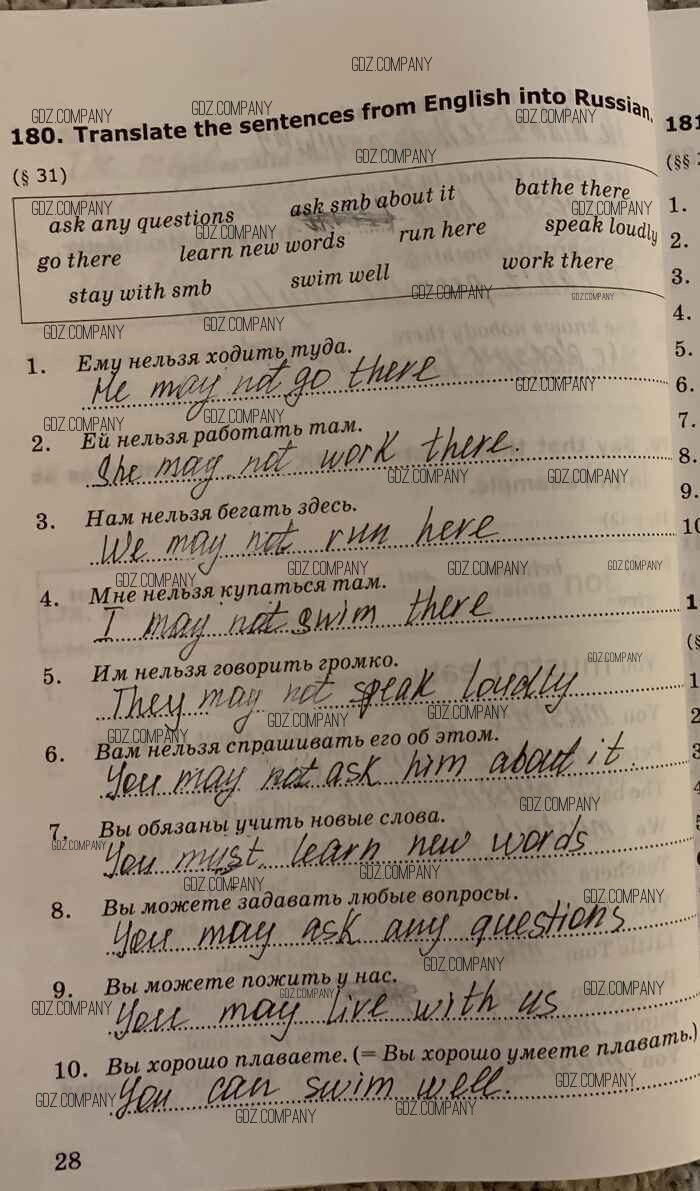 GDZ.COMPANY
180. Translate the sentences from English into Russian.
(§ 31)
ask any questions ask smb about it bathe there
go there learn new words run here speak loudly
stay with smb swim well work there
1. Ему нельзя ходить туда.
He may not go there
2. Ей нельзя работать там.
She may not work there.
3. Нам нельзя бегать здесь.
We may not run here
4. Мне нельзя купаться там.
I may not swim there
5. Им нельзя говорить громко.
They may not speak loudly
6. Вам нельзя спрашивать его об этом.
You may not ask him about it.
7. Вы обязаны учить новые слова.
You must learn new words
8. Вы можете задавать любые вопросы.
You may ask any questions
9. Вы можете пожить у нас.
You may live with us
10. Вы хорошо плаваете. (= Вы хорошо умеете плавать.)
You can swim well.
28
181
(§§
1.
2.
3.
4.
5.
6.
7.
8.
9.
10